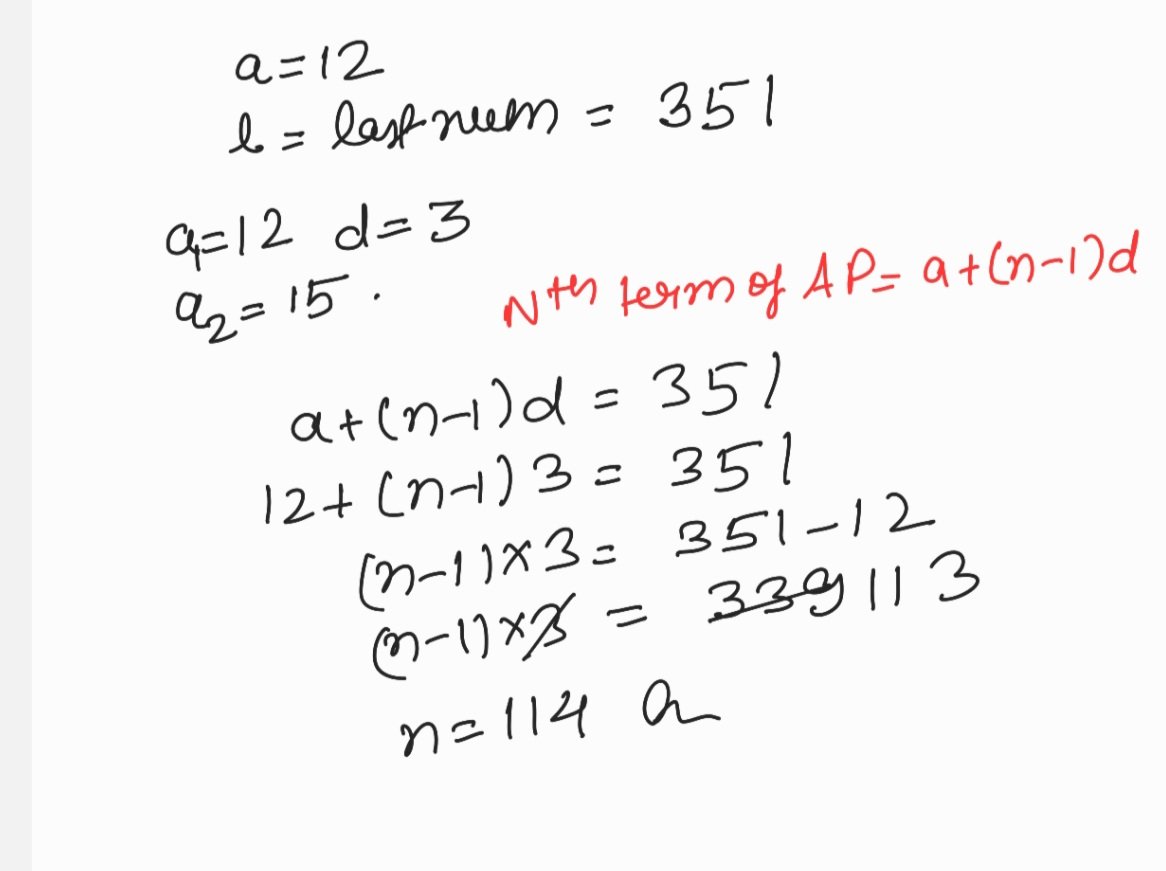 a=12
l = last num = 351
a₁=12 d=3
a₂=15.
Nth term of AP= a+(n-1)d
a+(n-1)d = 351
12+(n-1)3 = 351
(n-1)×3= 351-12
(n-1)×3 = 339 113
n=114